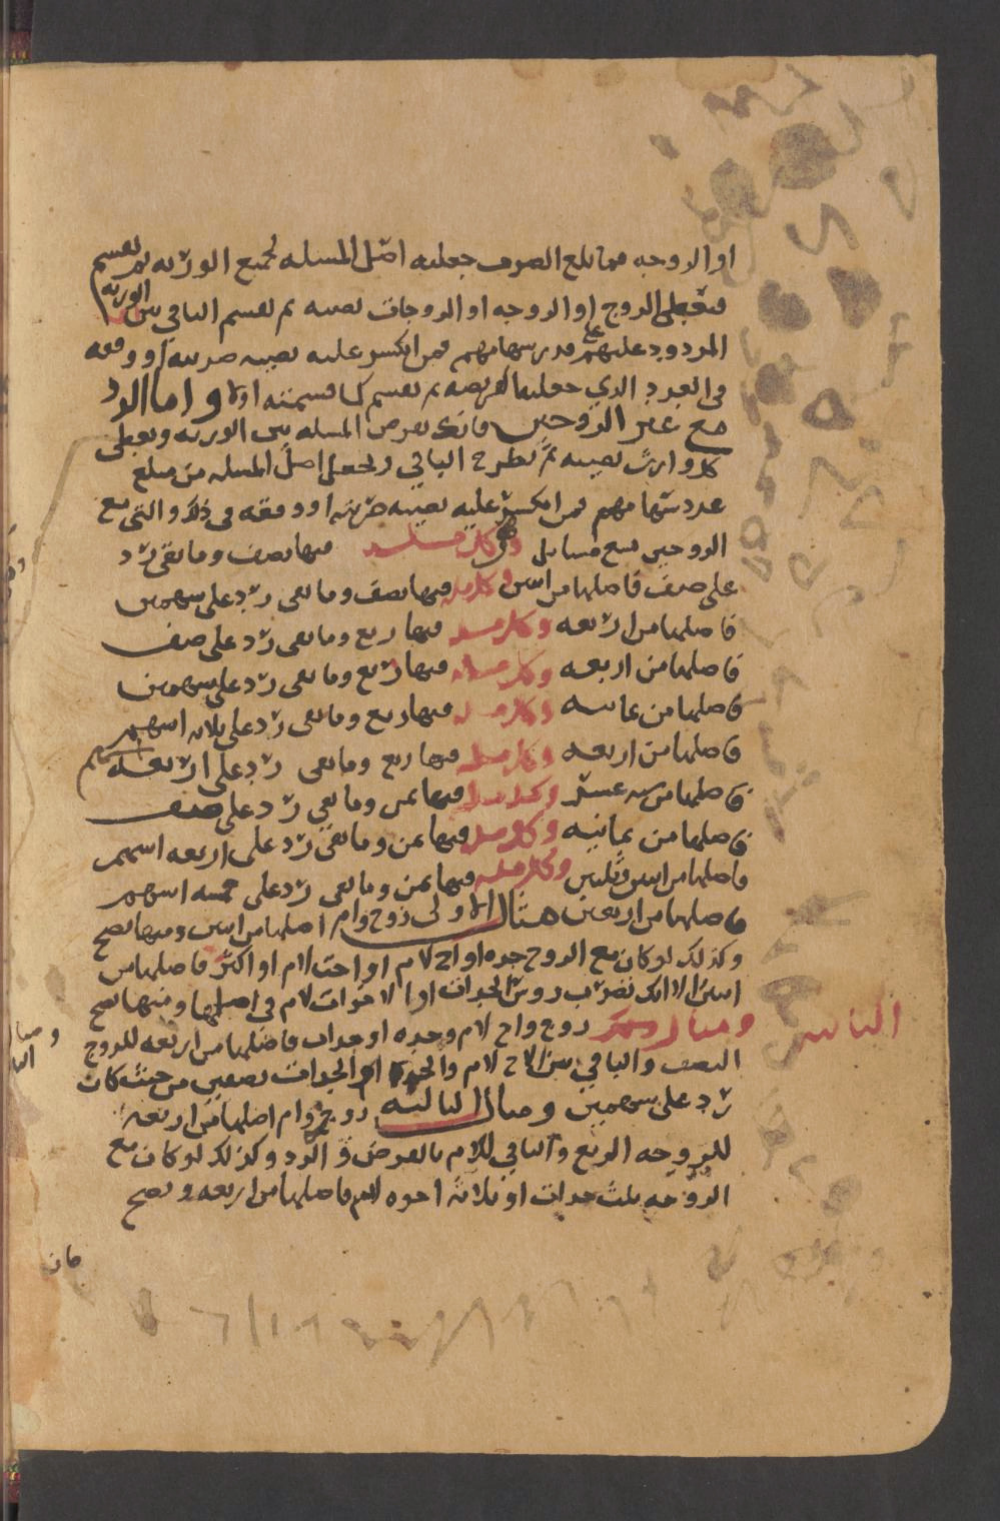 او الزوجه فما بلغ الضرب جعلته اصل المسله لجميع الورثه ثم تقسم
فتعطي الزوج او الزوجه او الزوجات نصيبه ثم تقسم الباقي بين الورثه
المردود عليهم على قدر سهامهم فمن انكسر عليه نصيبه ضربته او وفقه
في العدد الذي جعلتها الفريضه ثم تقسم كما قسمته اولا واما الرد
مع غير الزوجين فانك تفرض المسله بين الورثه وتعطي
كل وارث نصيبه ثم تطرح الباقي وتجعل اصل المسله من مبلغ
عدد سهامهم فمن انكسر عليه نصيبه ضربته او وفقه في ذلك والتي مع
الزوجين سبع مسايل وكل مسله فيها نصف وما بقي رد
على صنف فاصلها من اثنين وكل مسله فيها نصف وما بقي رد على سهمين
فاصلها من اربعه وكل مسله فيها ربع وما بقي رد على صنف
فاصلها من اربعه وكل مسله فيها ربع وما بقي رد على سهمين
فاصلها من ثمانيه وكل مسله فيها ربع وما بقي رد على ثلاثه اسهم
فاصلها من اربعه وكل مسله فيها ربع وما بقي رد على اربعه اسهم
فاصلها من سته عشر وكل مسله فيها ثمن وما بقي رد على صنف
فاصلها من ثمانيه وكل مسله فيها ثمن وما بقي رد على اربعه اسهم
فاصلها من اثنين وثلثين وكل مسله فيها ثمن وما بقي رد على خمسه اسهم
فاصلها من اربعين مثال الاولى زوج وام اصلها من اثنين ومنها تصح
وكذلك لو كان مع الزوج جده او اخ لام او اخت لام او اكثر فاصلها من
اثنين الا انك تضرب روس الجدات او الاخوات لام في اصلها ومنها تصح
ومثال الثانيه زوج واخ لام وجده او جدات فاصلها من اربعه للزوج
النصف والباقي بين الاخ لام والجده او الجدات نصفين من حيث كان
رد على سهمين ومثال الثالثه زوجه وام اصلها من اربعه
للزوجه الربع والباقي للام بالفرض والرد وكذلك لو كان مع
الزوجه ثلث جدات او ثلاثه اخوه لام فاصلها من اربعه وتصح